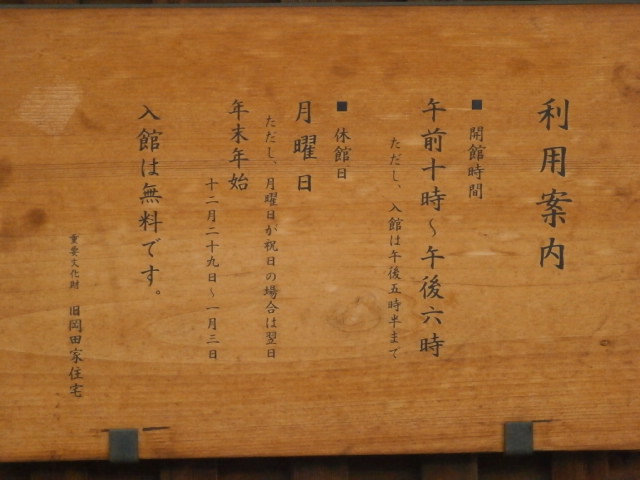 利用案内
■ 開館時間
午前十時～午後六時
ただし、入館は午後五時半まで
■ 休館日
月曜日
ただし、月曜日が祝日の場合は翌日
年末年始
十二月二十九日～一月三日
入館は無料です。
重要文化財 旧岡田家住宅